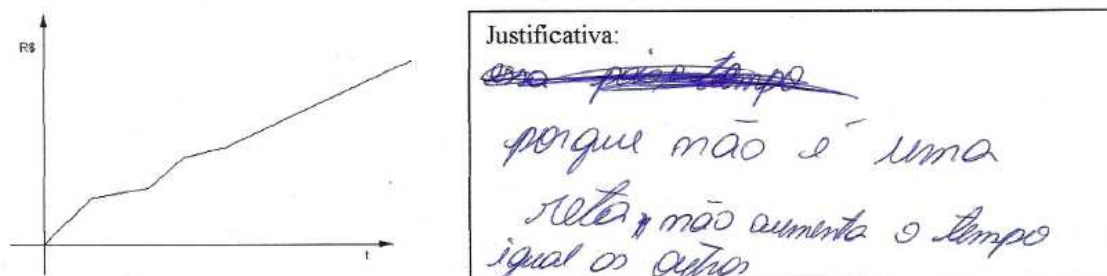 R$
t
Justificativa:
porque não é uma
reta, não aumenta o tempo
igual os outros